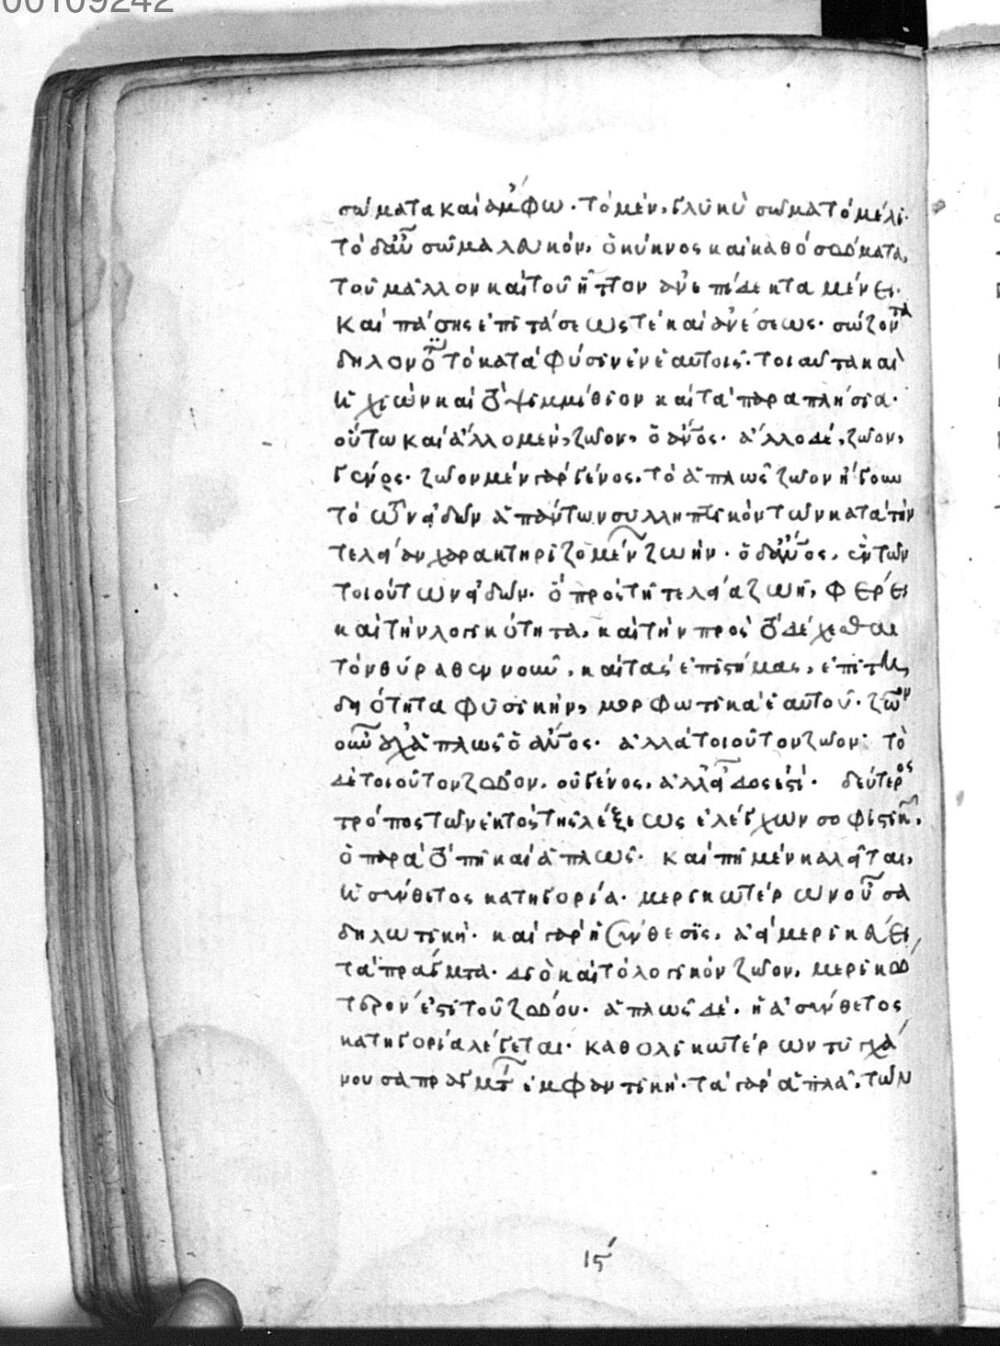 00109242
σώματα καὶ ἄμφω. τὸ μὲν, γλυκὺ σῶμα τὸ μέλι.
τὸ δ' αὖ σῶμα λευκὸν, ὁ κύκνος καὶ καθὸ σώματα,
τοῦ μᾶλλον καὶ τοῦ ἧττον ἀνεπίδεκτα μένει.
καὶ πάσης ἐπιτάσεως τὲ καὶ ἀνέσεως. σώζοντα
δηλονότι τὸ κατὰ φύσιν ἐν ἑαυτοῖς. τοιαῦτα καὶ
ἡ χιὼν καὶ τὸ ψιμμίθιον καὶ τὰ παραπλήσια.
οὕτω καὶ ἄλλο μὲν, ζῶον, ὁ ἄνος. ἄλλο δὲ, ζῶον,
γένος. ζῶον μὲν γὰρ γένος, τὸ ἁπλῶς ζῶον ἤγουν
τὸ τῶν εἰδῶν ἁπάντων συλληπτικὸν τῶν κατὰ τὴν
τελείαν χαρακτηριζομένων ζωήν. ὁ δ' ἄνος, ἓν τῶν
τοιούτων εἰδῶν. ὃ πρὸς τῆ τελεία ζωῆ, φέρει
καὶ τὴν λογικότητα, καὶ τὴν πρὸς τὸ δέχεσθαι
τὸν θύραθεν νοῦν, καὶ τὰς ἐπιστήμας, ἐπιτη
δειότητα φυσικὴν, μορφωτικὰ ἑαυτοῦ. ζῶον
οὖν οὐχ ἁπλῶς ὁ ἄνος. ἀλλὰ τοιοῦτον ζῶον. τὸ
δὲ τοιοῦτον ζῶον, οὐ γένος, ἀλλ' εἶδος ἐστί. δεύτερος
τρόπος τῶν ἐκτὸς τῆς λέξεως ἐλέγχων σοφιστικῶν,
ὁ παρὰ τὸ πῆ καὶ ἁπλῶς. καὶ πῆ μὲν καλεῖται,
ἡ σύνθετος κατηγορία. μερικωτέρων οὖσα
δηλωτική. καὶ γὰρ ἡ σύνθεσις, ἀεὶ μερικεύει
τὰ πράγματα. διὸ καὶ τὸ λογικὸν ζῶον, μερικώ
τερον ἐστὶ τοῦ ζώου. ἁπλῶς δὲ, ἡ ἀσύνθετος
κατηγορία λέγεται. καθολικωτέρων τυγχά
νουσα πραγμάτων ἐμφαντική. τὰ γὰρ ἁπλᾶ, τῶν
ιϛ´